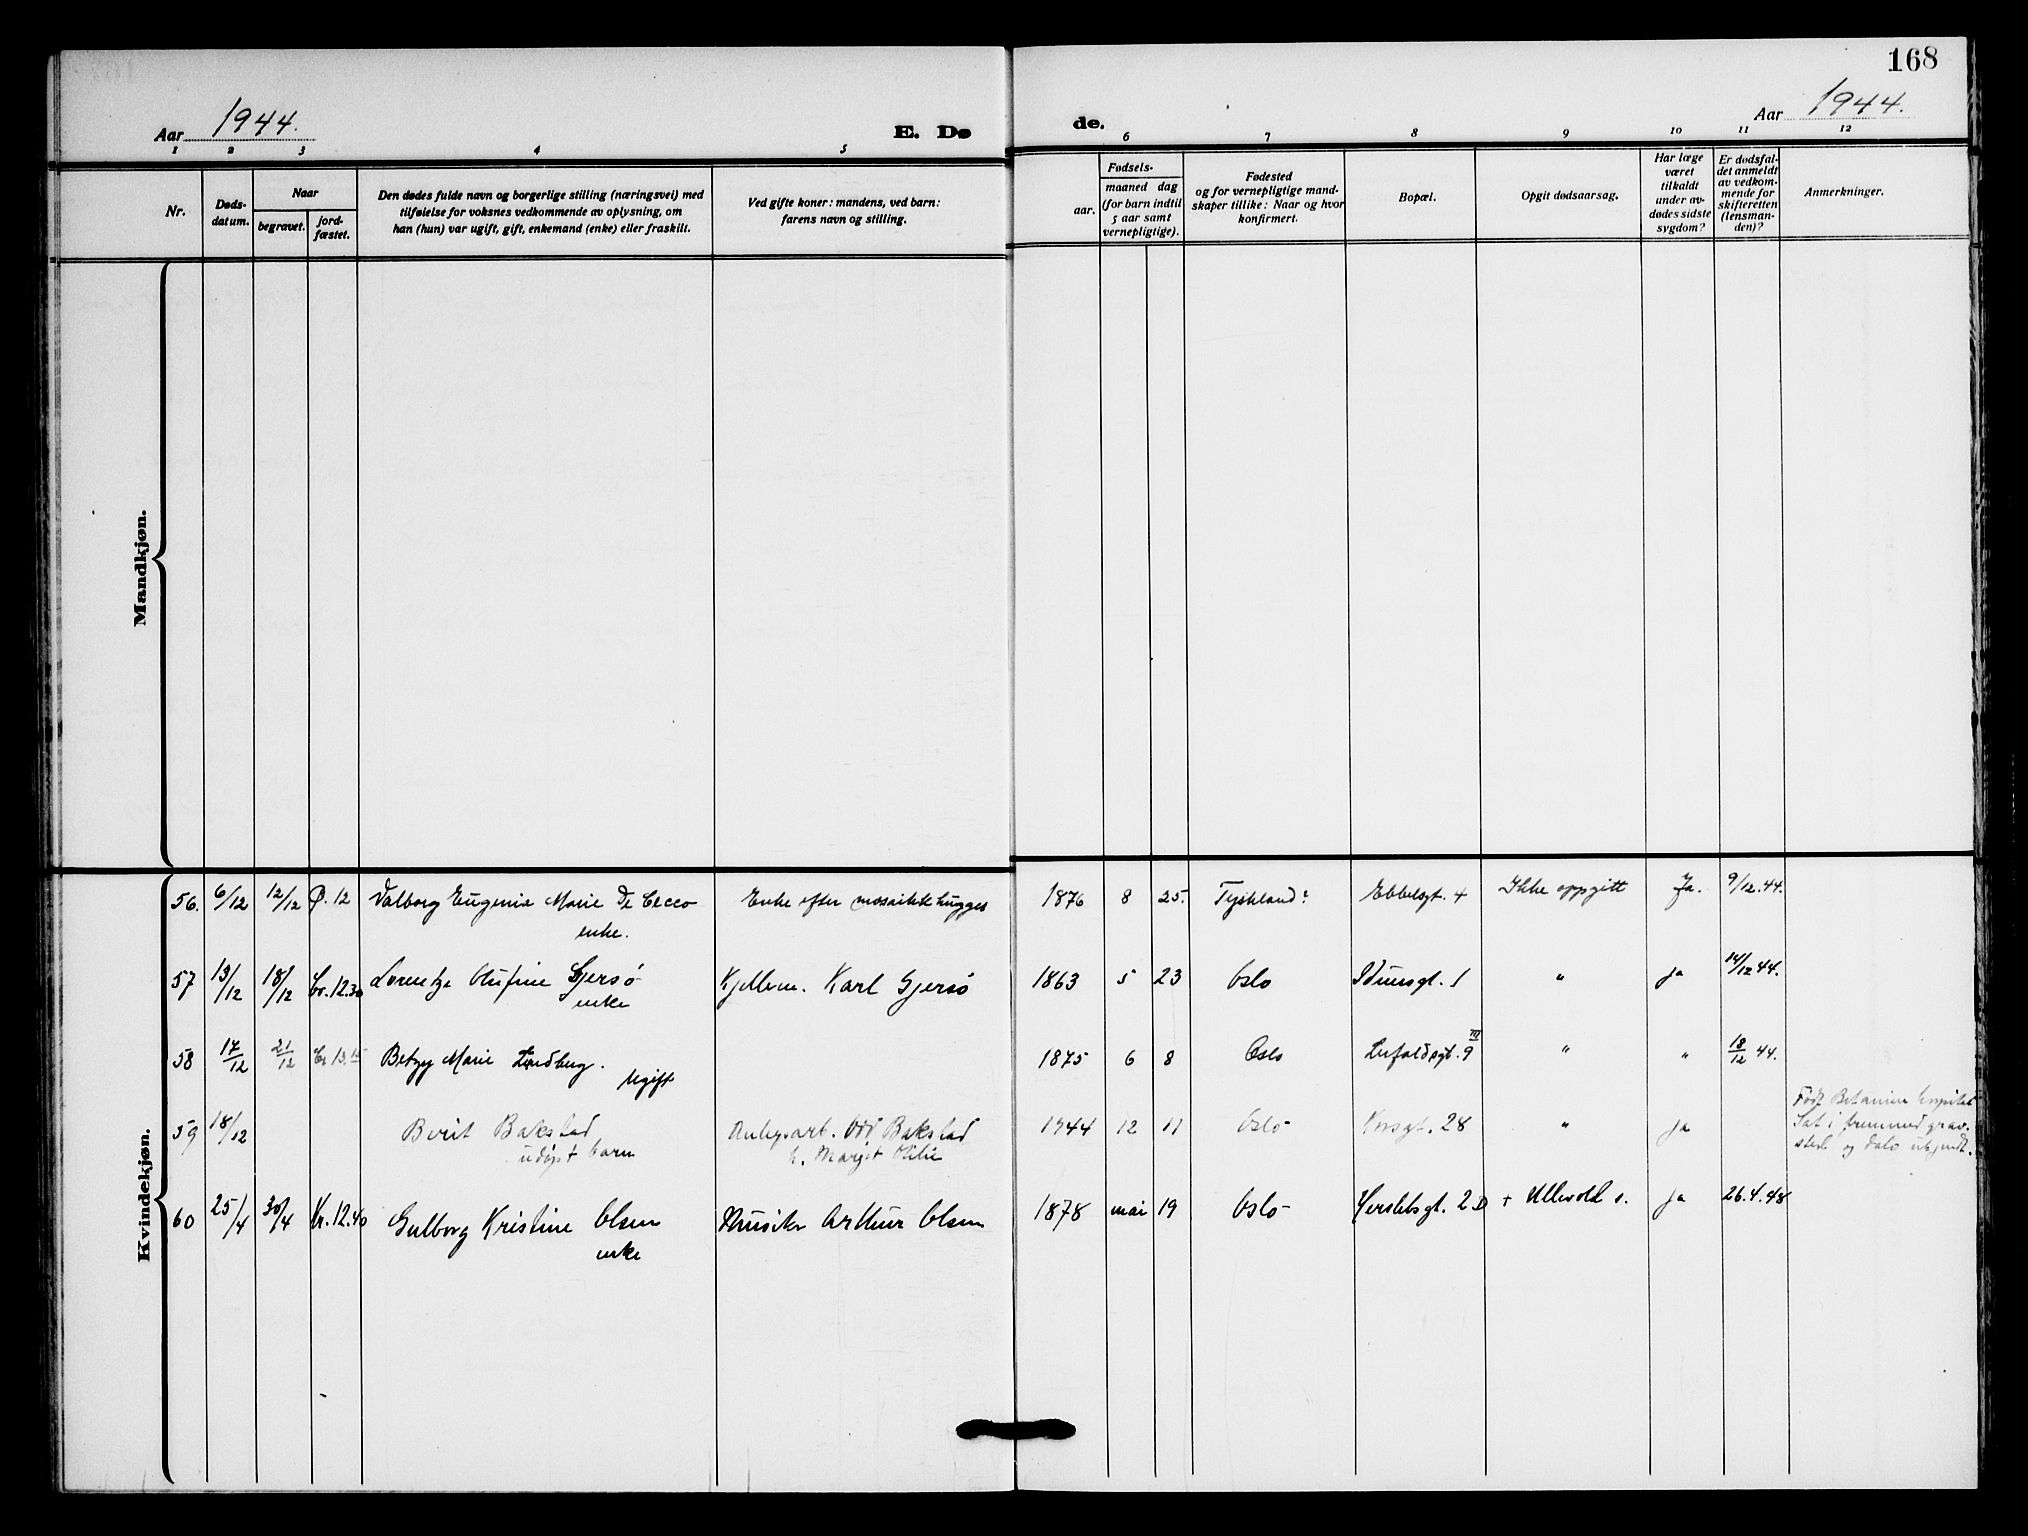 168
Aar 1944.
E. Dø
de.
Aar 1944.
1 2 3 4 5 6 7 8 9 10 11 12
Nr.
Døds-
datum.
Naar
begravet.
jord-
fæstet.
Den dødes fulde navn og borgerlige stilling (næringsvei) med
tilføielse for voksnes vedkommende av oplysning, om
han (hun) var ugift, gift, enkemand (enke) eller fraskilt.
Ved gifte koner: mandens, ved barn:
farens navn og stilling.
Fødsels-
aar.
maaned dag
(for barn indtil
5 aar samt
vernepligtige).
Fødested
og for vernepligtige mand-
skaper tillike: Naar og hvor
konfirmert.
Bopæl.
Opgit dødsaarsag.
Har læge
været
tilkaldt
under av-
dødes sidste
sygdom?
Er dødsfal-
det anmeldt
av vedkom-
mende for
skifteretten
(lensman-
den)?
Anmerkninger.
Mandkjøn.
Kvindekjøn.
56. 6/12 12/12 12 Valborg Eugenie Marie De Cecco Enke efter mosaikkhugger 1876 8 25. Tyskland? Ebbelsgt. 4 Ikke oppgitt Ja. 9/12.44.
enke.
57 13/12 18/12 12.30 Lorentze Olufine Gjersø Kjellerm. Karl Gjersø 1863 5 23 Oslo Idunsgt. 1 " ja 14/12 44.
enke
58 17/12 21/12 13.15 Betzy Marie Lindberg. 1875 6 8 Oslo 9 III " " 18/12 44.
Ugift
59 18/12 Berit Bakstad Odd Bakstad 1944 12 11 Oslo Korsgt. 28 " ja Født Betanien hospital
udøpt barn Margit
Sat i fremmed grav.
sted og dato ukjendt.
60 25/4 30/4 Kr. 12.40 Gulborg Kristine Olsen Musiker Arthur Olsen 1878 mai 19 Oslo Herslebsgt. 2 D + Ullevold s. ja 26.4.48
enke